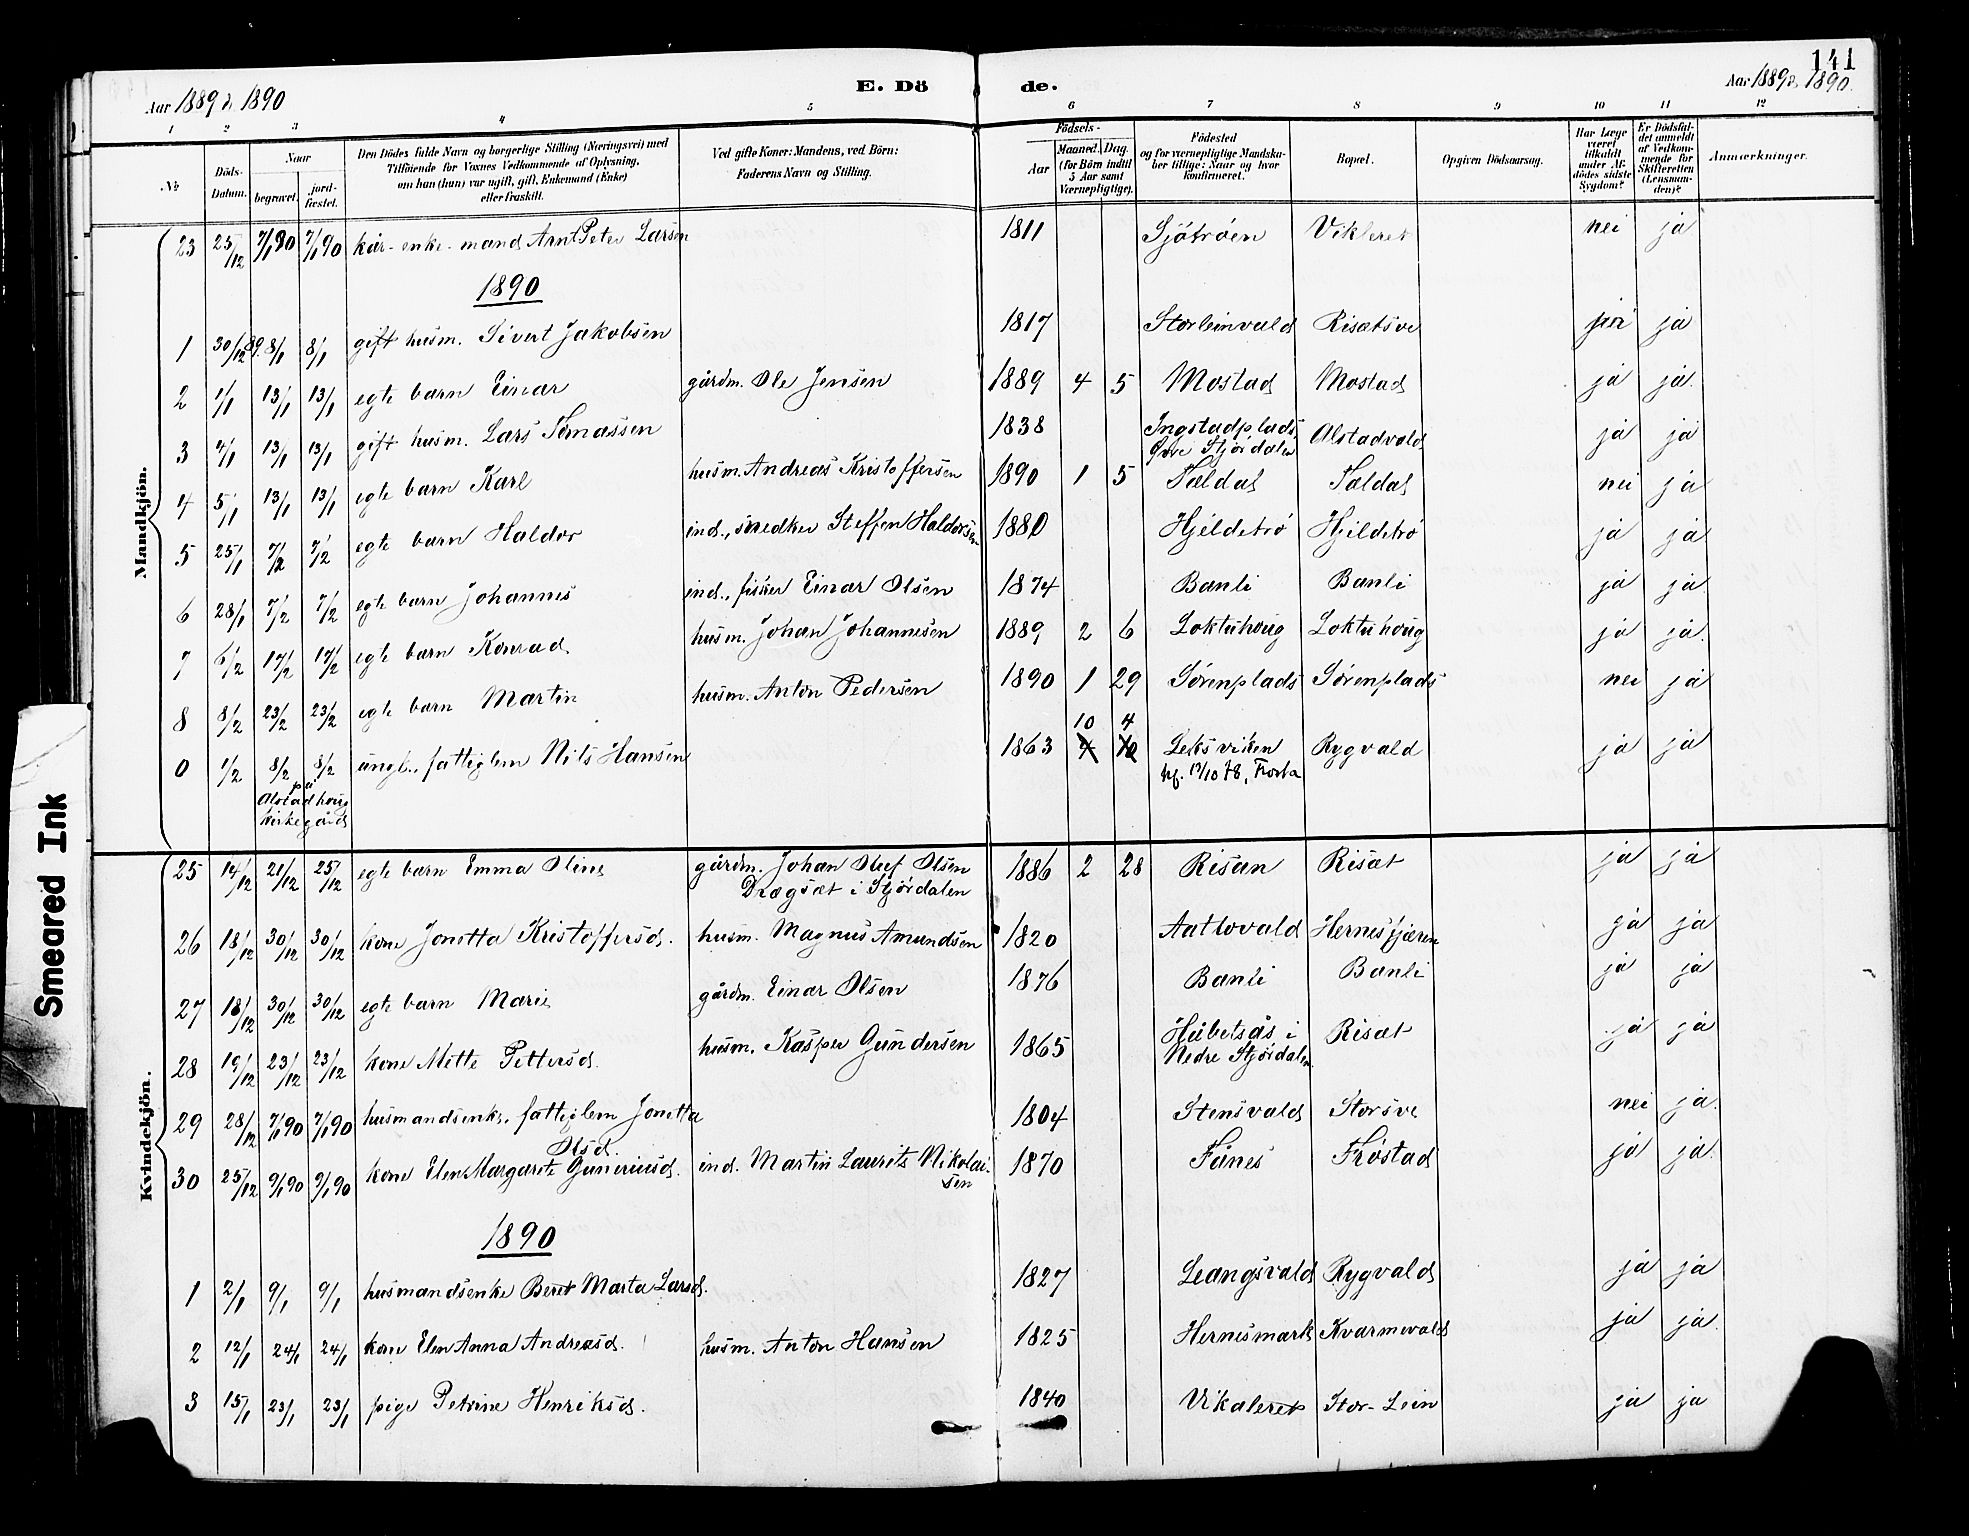 141
Aar 1889 & 1890
E. Dö
de.
Aar 1889 & 1890.
1 2 3 4 5 6 7 8 9 10 11 12
№
Döds-Datum.
Naar
begravet.
jord-fæstet.
Den Dödes fulde Navn og borgerlige Stilling (Næringsvei) med
Tilföiende for Voxnes Vedkommende af Oplysning,
om han (hun) var ugift, gift, Enkemand (Enke)
eller fraskilt.
Ved gifte Koner: Mandens, ved Börn:
Faderens Navn og Stilling.
Födsels-
Aar
Maaned. Dag.
(for Börn indtil
5 Aar samt
Værnepligtige).
Födested
og for værnepligtige Mandska-
ber tillige: Naar og hvor
konfirmeret.
Bopæl.
Opgiven Dödsaarsag.
Har Læge
været
tilkaldt
under Af-
dödes sidste
Sygdom?
Er Dödsfal-
det anmeldt
af Vedkom-
mende for
Skifteretten
(Lensman-
den)?
Anmærkninger.
Mandkjön.
23 25/12 7/1 90 7/1 90 kår-enke-mand Arnt Peter Larsen 1811 Sjötröen Vikleret nei ja
1890
1 30/12 89. 8/1 8/1 gift husm. Sivert Jakobsen 1817 Storleinvald Risætsve ja
2 1/1 13/1 13/1 egte barn Einar gårdm. Ole Jensen 1889 4 5 Mostad Mostad ja ja.
3 4/1 13/1 13/1 gift husm. Lars Tomassen 1838 Ingstadplads, Alstadvald ja ja
Övre Stjördalen
4 5/1 13/1 13/1 egte barn Karl husm. Andreas Kristoffersen 1890 1 5 Sældal Sældal nei ja
5 25/1 7/2 7/2 egte barn Haldor ind., snedker Steffen Haldorsen 1880 Hjeldetrö Hjeldetrö ja ja
6 28/1 7/2 7/2 egte barn Johannes ind., fisker Einar Olsen 1874 Banli Banli ja ja.
7 6/2 17/2 17/2 egte barn Konrad husm. Johan Johannesen 1889 2 6 Loktuhoug Loktuhoug ja ja.
8 8/2 23/2 23/2 egte barn Martin husm. Anton Pedersen 1890 1 29 Sörenplads Sörenplads nei ja
10 4
0 1/2 8/2 8/2 ungk., fattiglem Nils Hansen 1863 4 10 Leksviken Rygvald ja ja
på
Alstadhoug
kirkegård
kf. 13/10 78, Frosta
Kvindekjön.
25 14/12 21/12 25/12 egte barn Emma Oline gårdm. Johan Oluf Olsen 1886 2 28 Risan Risæt ja ja
Drægsæt i Stjördalen
26 18/12 30/12 30/12 kone Jonetta Kristoffersd. husm. Magnus Amundsen 1820 Aatlovald Hernesfjæren ja ja
27 18/12 30/12 30/12 egte barn Marie gårdm. Einar Olsen 1876 Banli Banli ja ja
28 19/12 23/12 23/12 kone Mette Pettersd. husm. Kasper Gundersen 1865 Hubetsås i Risæt ja ja
Nedre Stjördalen
29 28/12 7/1 90 7/1 90 husmandsenke, fattiglem Jonetta 1804 Stensvald Storsve nei ja.
Olsd.
30 25/12 9/1 90 9/1 90 kone Elen Margarete Guneriusd. ind. Martin Laurits Nikolai- 1870 Fånes Fröstad ja ja.
sen
1890
1 2/1 9/1 9/1 husmandsenke Beret Marta Larsd. 1827 Leangsvald Rygvald ja ja
2 12/1 24/1 24/1 kone Elen Anna Andreasd. husm. Anton Hansen 1825 Hernesmark Kvarmevald ja ja
3 15/1 23/1 23/1 pige Petrine Henriksd. 1840 Vikaleret Stor-Lein ja ja
Smeared Ink